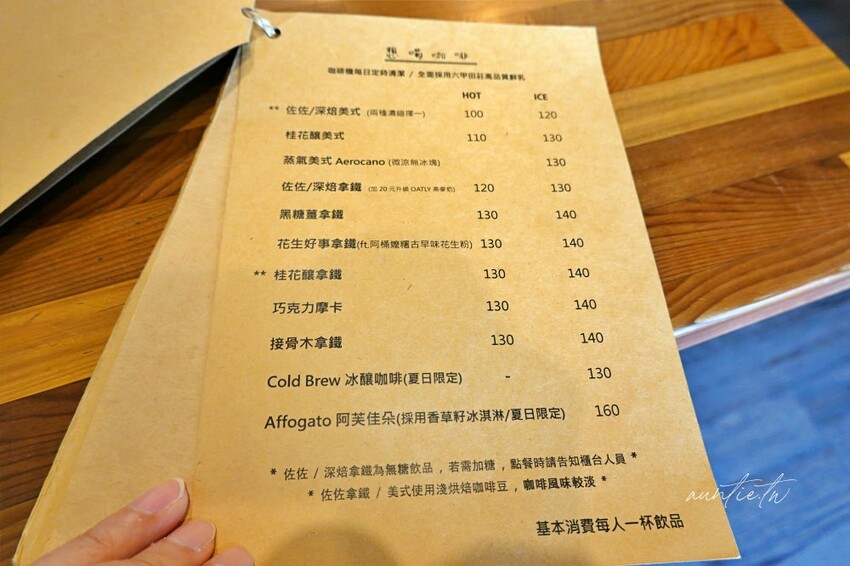 想喝咖啡
咖啡機每日定時清潔 / 全面採用六甲田莊高品質鮮乳
HOT ICE
** 佐佐/深焙美式 (兩種濃縮擇一) 100 120
桂花釀美式 110 130
蒸氣美式 Aerocano (微涼無冰塊) 130
佐佐/深焙拿鐵 (加 20 元升級 OATLY 燕麥奶) 120 130
黑糖薑拿鐵 130 140
花生好事拿鐵(ft.阿桶嬤糯古早味花生粉) 130 140
** 桂花釀拿鐵 130 140
巧克力摩卡 130 140
接骨木拿鐵 130 140
Cold Brew 冰釀咖啡(夏日限定) - 130
Affogato 阿芙佳朵(採用香草籽冰淇淋/夏日限定) 160
* 佐佐 / 深焙拿鐵為無糖飲品 , 若需加糖 , 點餐時請告知櫃台人員 *
* 佐佐拿鐵 / 美式使用淺烘焙咖啡豆 , 咖啡風味較淡 *
auntie.tw
基本消費每人一杯飲品